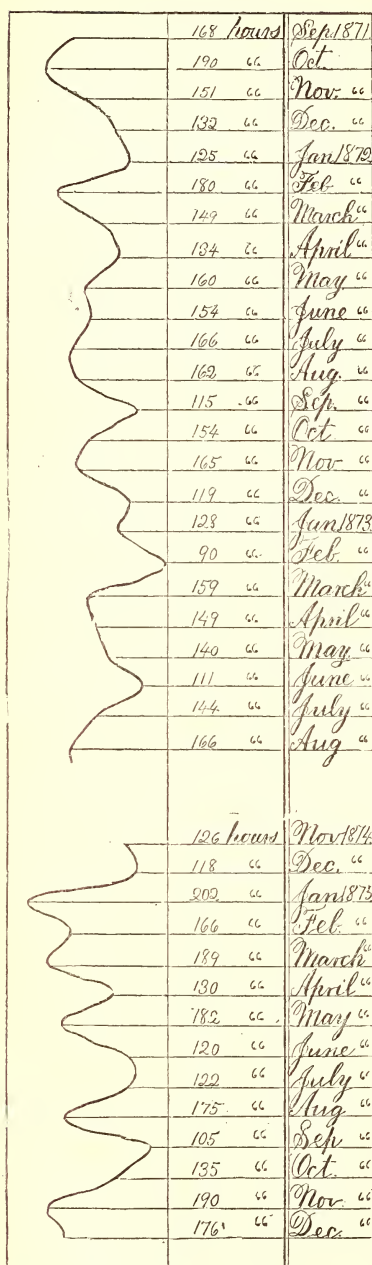 168 hours Sep 1871
190 " Oct.
151 " Nov. "
132 " Dec. "
125 " Jan 1872
180 " Feb "
149 " March "
134 " April "
160 " May "
154 " June "
166 " July "
162 " Aug. "
115 " Sep. "
154 " Oct "
165 " Nov "
119 " Dec. "
128 " Jan 1873
90 " Feb. "
159 " March "
149 " April "
140 " May. "
111 " June "
144 " July "
166 " Aug "
126 hours Nov 1874
118 " Dec. "
202 " Jan 1875
166 " Feb. "
189 " March "
130 " April "
182 " May "
120 " June "
122 " July "
175 " Aug "
105 " Sep "
135 " Oct. "
190 " Nov. "
176 " Dec. "